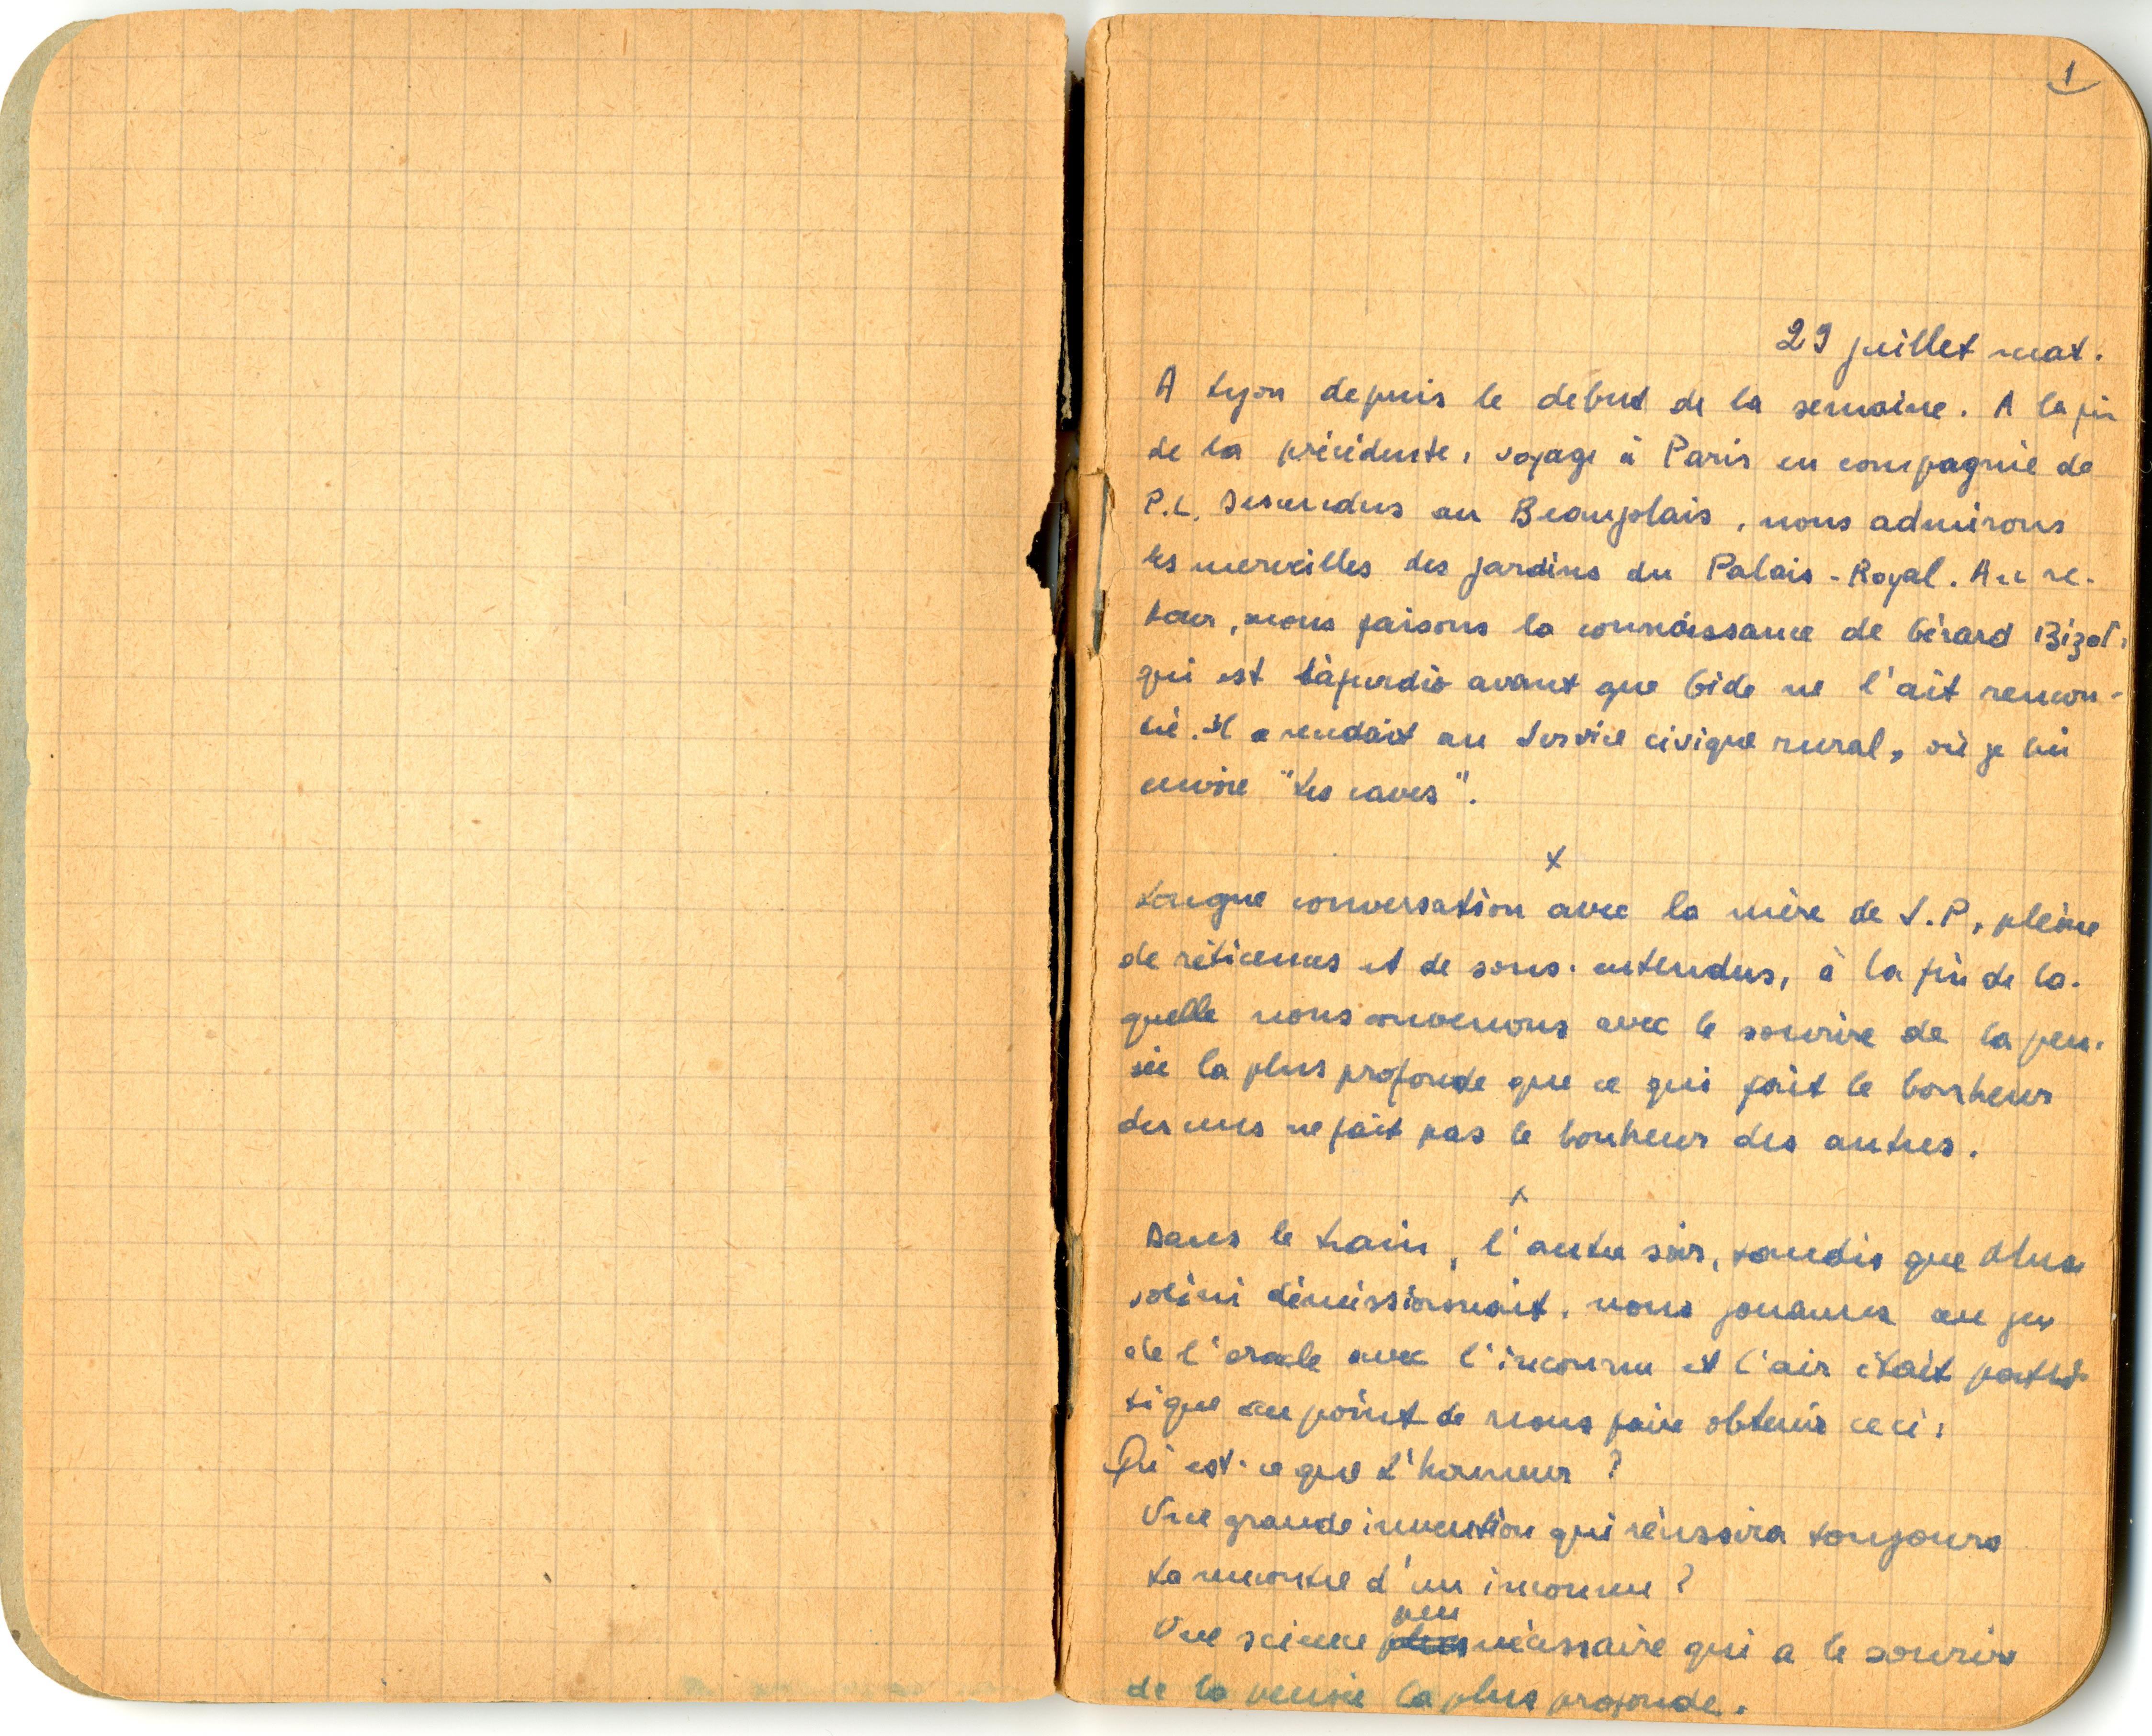 1
29 juillet mat.
A Lyon depuis le debut de la semaine. A la fin
de la précédente, voyage à Paris en compagnie de
P.L. Descendus au Beaujolais, nous admirons
les merveilles des jardins du Palais-Royal. Au re-
tour, nous faisons la connaissance de Gérard Bizot,
qui est avant que Gide ne l'ait rencon-
tré. Il se rendait au Service civique rural, où je lui
envoie "Les caves".
x
Longue conversation avec la mère de J.P, pleine
de réticences et de sous-entendus, à la fin de la-
quelle nous convenons avec le sourire de la pen-
sée la plus profonde que ce qui fait le bonheur
des uns ne fait pas le bonheur des autres.
x
Dans le train, l'autre soir, tandis que Mus-
solini démissionnait, nous jouames au jeu
de l'oracle avec l'inconnu et l'air était pathé-
tique au point de nous faire obtenir ceci:
Qu'est-ce que l'honneur ?
Une grande invention qui réussira toujours
La rencontre d'un inconnu ?
peu
Une science plus nécessaire qui a le sourire
de la pensée la plus profonde.